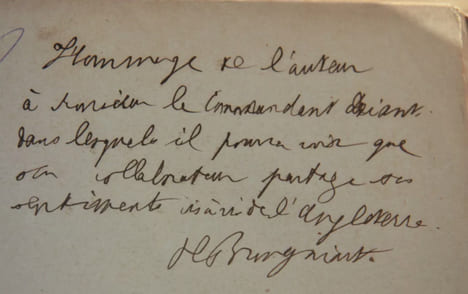 Hommage de l'auteur
à Monsieur le Commandant Driant.
dans lesquels il pourra voir que
son collaborateur partage ses
sentiments vis à vis de l'Angleterre.